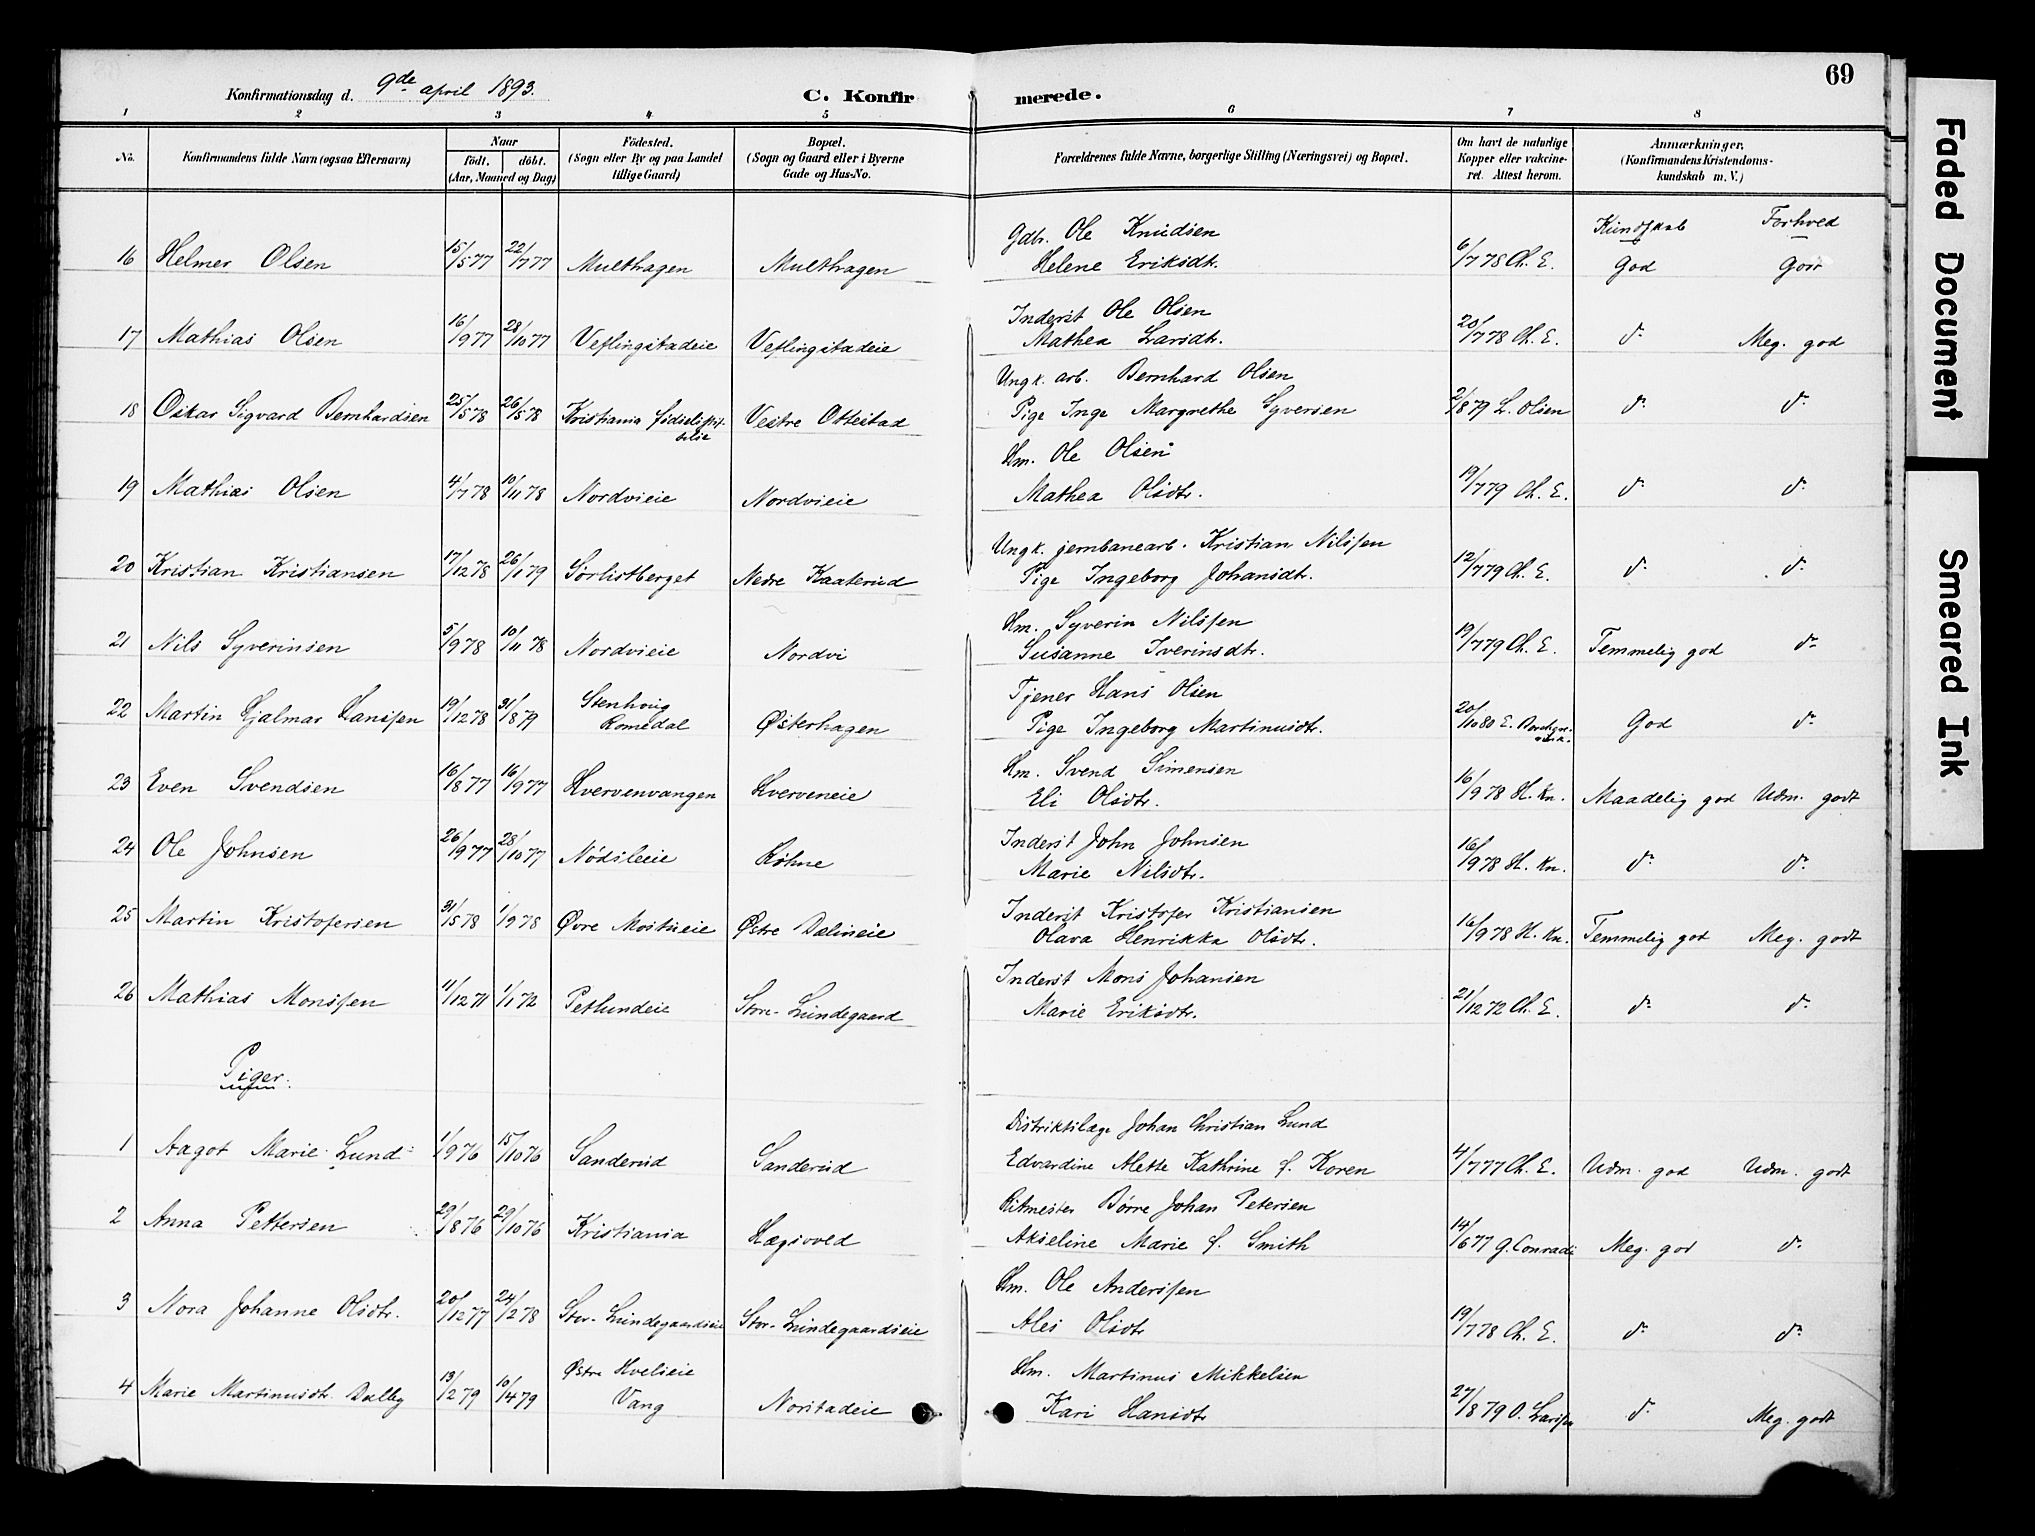 Konfirmationsdag d. 9de april 1893. C. Konfirmerede. 69
1 2 3 4 5 6 7 8
No. Konfirmandens fulde Navn (ogsaa Efternavn) Naar født. døbt. (Aar, Maaned og Dag) Fødested. (Sogn eller By og paa Landet tillige Gaard) Bopæl. (Sogn og Gaard eller i Byerne Gade og Hus-No. Forældrenes fulde Navne, borgerlige Stilling (Næringsvei) og Bopæl. Om havt de naturlige Kopper eller vakcineret. Attest herom. Anmærkninger. (Konfirmandens Kristendomskundskab m. V.)
Kundskab Forhold
Gdbr. Ole Knudsen
16 Helmer Olsen 15/5 77 22/7 77 Multhagen Multhagen Helene Eriksdt. 6/7 78 Ch. E. God Godt
Inderst Ole Olsen
17 Mathias Olsen 16/9 77 28/10 77 Veflingstadeie Veflingstadeie Mathea Larsdt. 20/7 78 Ch. E. do Meg. god
Ungk. arb. Bernhard Olsen
18 Oskar Sigvard Bernhardsen 25/5 78 26/5 78 Kristiania fødselsstiftelse Vestre Ottestad Pige Inge Margrethe Syversen 2/8 79 L. Olsen do do
Hm. Ole Olsen
19 Mathias Olsen 4/7 78 10/11 78 Nordvieie Nordvieie Mathea Olsdtr. 19/7 79 Ch. E. do do
Ungk. jernbanearb. Kristian Nilssen
20 Kristian Kristiansen 17/12 78 26/1 79 Sørlistberget Nedre Kaaterud Pige Ingeborg Johansdt. 12/7 79 Ch. E. do do
Hm. Syverin Nilssen
21 Nils Syverinsen 5/9 78 10/11 78 Nordvieie Nordvi Susanne Iverinsdtr. 19/7 79 Ch. E. Temmelig god do
Tjener Hans Olsen
22 Martin Hjalmar Hanssen 19/12 78 31/8 79 Stenhoug Romedal Østerhagen Pige Ingeborg Martinusdtr. 20/10 80 E. God do
Hm. Svend Simensen
23 Even Svendsen 16/8 77 16/9 77 Hvervenvangen Hverveneie Eli Olsdtr. 16/9 78 H. Kn. Maadelig god Udm. godt
Inderst John Johnsen
24 Ole Johnsen 26/9 77 28/10 77 Nødsleeie Røhne Marie Nilsdtr. 16/9 78 H. Kn. do do
Inderst Kristofer Kristiansen
25 Martin Kristofersen 31/5 78 1/9 78 Øvre Mostueie Østre Dælineie Olava Henrikka Olsdtr. 16/9 78 H. Kn. Temmelig god Meg. godt
Inderst Mons Johansen
26 Mathias Monssen 11/12 71 1/1 72 Petlundeie Store-Lundegaard Marie Eriksdtr. 21/12 72 Ch. E. do do
Piger.
Distriktslæge Johan Christian Lund
1 Aagot Marie Lund 1/9 76 15/10 76 Sanderud Sanderud Edvardine Alette Kathrine f. Koren 4/7 77 Ch. E. Udm. god Udm. godt
Ritmester Børre Johan Petersen
2 Anna Pettersen 29/8 76 29/10 76 Kristiania Hægsved Akseline Marie f. Smith 14/6 77 G. Conradi Meg. god do
Hm. Ole Anderssen
3 Nora Johanne Olsdtr. 20/12 77 24/2 78 Stor-Lundegaardseie Stor-Lundegaardseie Ales Olsdtr 19/7 78 Ch. E. do do
Hm. Martinus Mikkelsen
4 Marie Martinusdtr. Dalby 13/2 79 10/4 79 Østre Hvelseie Vang Norstadeie Kari Hansdtr 27/8 79 O. Larssen do Meg. godt
Faded Document
Smeared Ink